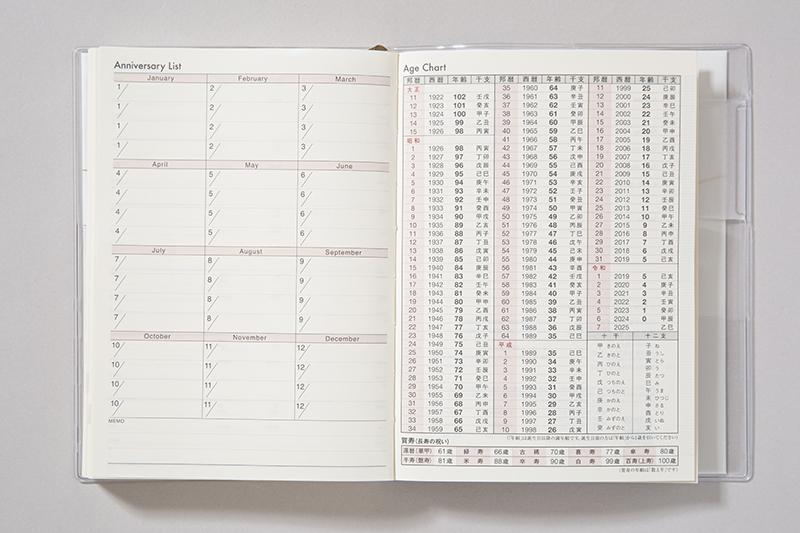 Anniversary List
January February March
1/ 2/ 3/
1/ 2/ 3/
1/ 2/ 3/
1/ 2/ 3/
April May June
4/ 5/ 6/
4/ 5/ 6/
4/ 5/ 6/
4/ 5/ 6/
July August September
7/ 8/ 9/
7/ 8/ 9/
7/ 8/ 9/
7/ 8/ 9/
October November December
10/ 11/ 12/
10/ 11/ 12/
10/ 11/ 12/
10/ 11/ 12/
MEMO
Age Chart
邦暦 西暦 年齢 干支
大正
11 1922 102 壬戌
12 1923 101 癸亥
13 1924 100 甲子
14 1925 99 乙丑
15 1926 98 丙寅
昭和
1 1926 98 丙寅
2 1927 97 丁卯
3 1928 96 戊辰
4 1929 95 己巳
5 1930 94 庚午
6 1931 93 辛未
7 1932 92 壬申
8 1933 91 癸酉
9 1934 90 甲戌
10 1935 89 乙亥
11 1936 88 丙子
12 1937 87 丁丑
13 1938 86 戊寅
14 1939 85 己卯
15 1940 84 庚辰
16 1941 83 辛巳
17 1942 82 壬午
18 1943 81 癸未
19 1944 80 甲申
20 1945 79 乙酉
21 1946 78 丙戌
22 1947 77 丁亥
23 1948 76 戊子
24 1949 75 己丑
25 1950 74 庚寅
26 1951 73 辛卯
27 1952 72 壬辰
28 1953 71 癸巳
29 1954 70 甲午
30 1955 69 乙未
31 1956 68 丙申
32 1957 67 丁酉
33 1958 66 戊戌
34 1959 65 己亥
邦暦 西暦 年齢 干支
35 1960 64 庚子
36 1961 63 辛丑
37 1962 62 壬寅
38 1963 61 癸卯
39 1964 60 甲辰
40 1965 59 乙巳
41 1966 58 丙午
42 1967 57 丁未
43 1968 56 戊申
44 1969 55 己酉
45 1970 54 庚戌
46 1971 53 辛亥
47 1972 52 壬子
48 1973 51 癸丑
49 1974 50 甲寅
50 1975 49 乙卯
51 1976 48 丙辰
52 1977 47 丁巳
53 1978 46 戊午
54 1979 45 己未
55 1980 44 庚申
56 1981 43 辛酉
57 1982 42 壬戌
58 1983 41 癸亥
59 1984 40 甲子
60 1985 39 乙丑
61 1986 38 丙寅
62 1987 37 丁卯
63 1988 36 戊辰
64 1989 35 己巳
平成
1 1989 35 己巳
2 1990 34 庚午
3 1991 33 辛未
4 1992 32 壬申
5 1993 31 癸酉
6 1994 30 甲戌
7 1995 29 乙亥
8 1996 28 丙子
9 1997 27 丁丑
10 1998 26 戊寅
邦暦 西暦 年齢 干支
11 1999 25 己卯
12 2000 24 庚辰
13 2001 23 辛巳
14 2002 22 壬午
15 2003 21 癸未
16 2004 20 甲申
17 2005 19 乙酉
18 2006 18 丙戌
19 2007 17 丁亥
20 2008 16 戊子
21 2009 15 己丑
22 2010 14 庚寅
23 2011 13 辛卯
24 2012 12 壬辰
25 2013 11 癸巳
26 2014 10 甲午
27 2015 9 乙未
28 2016 8 丙申
29 2017 7 丁酉
30 2018 6 戊戌
31 2019 5 己亥
令和
1 2019 5 己亥
2 2020 4 庚子
3 2021 3 辛丑
4 2022 2 壬寅
5 2023 1 癸卯
6 2024 0 甲辰
7 2025 乙巳
十干
甲 きのえ
乙 きのと
丙 ひのえ
丁 ひのと
戊 つちのえ
己 つちのと
庚 かのえ
辛 かのと
壬 みずのえ
癸 みずのと
十二支
子 ね
丑 うし
寅 とら
卯 う
辰 たつ
巳 み
午 うま
未 ひつじ
申 さる
酉 とり
戌 いぬ
亥 い
(「年齢」は誕生日以降の満年齢です。誕生日前の方は「年齢」から1歳を引いてください)
賀寿(長寿の祝い)
還暦(華甲) 61歳 緑寿 66歳 古稀 70歳 喜寿 77歳 傘寿 80歳
半寿(盤寿) 81歳 米寿 88歳 卒寿 90歳 白寿 99歳 百寿(上寿) 100歳
(賀寿の年齢は「数え年」です)